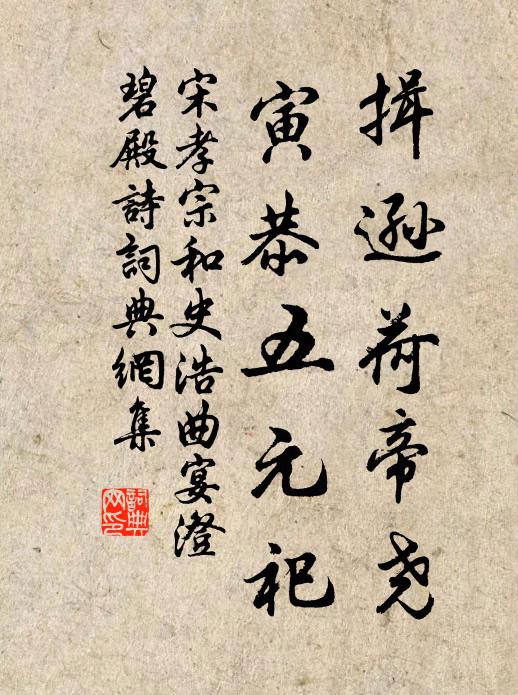 揖遜荷帝尧
寅恭五元祀
宋孝宗和史浩曲宴澄
碧殿詩詞典網集
詞典
网印